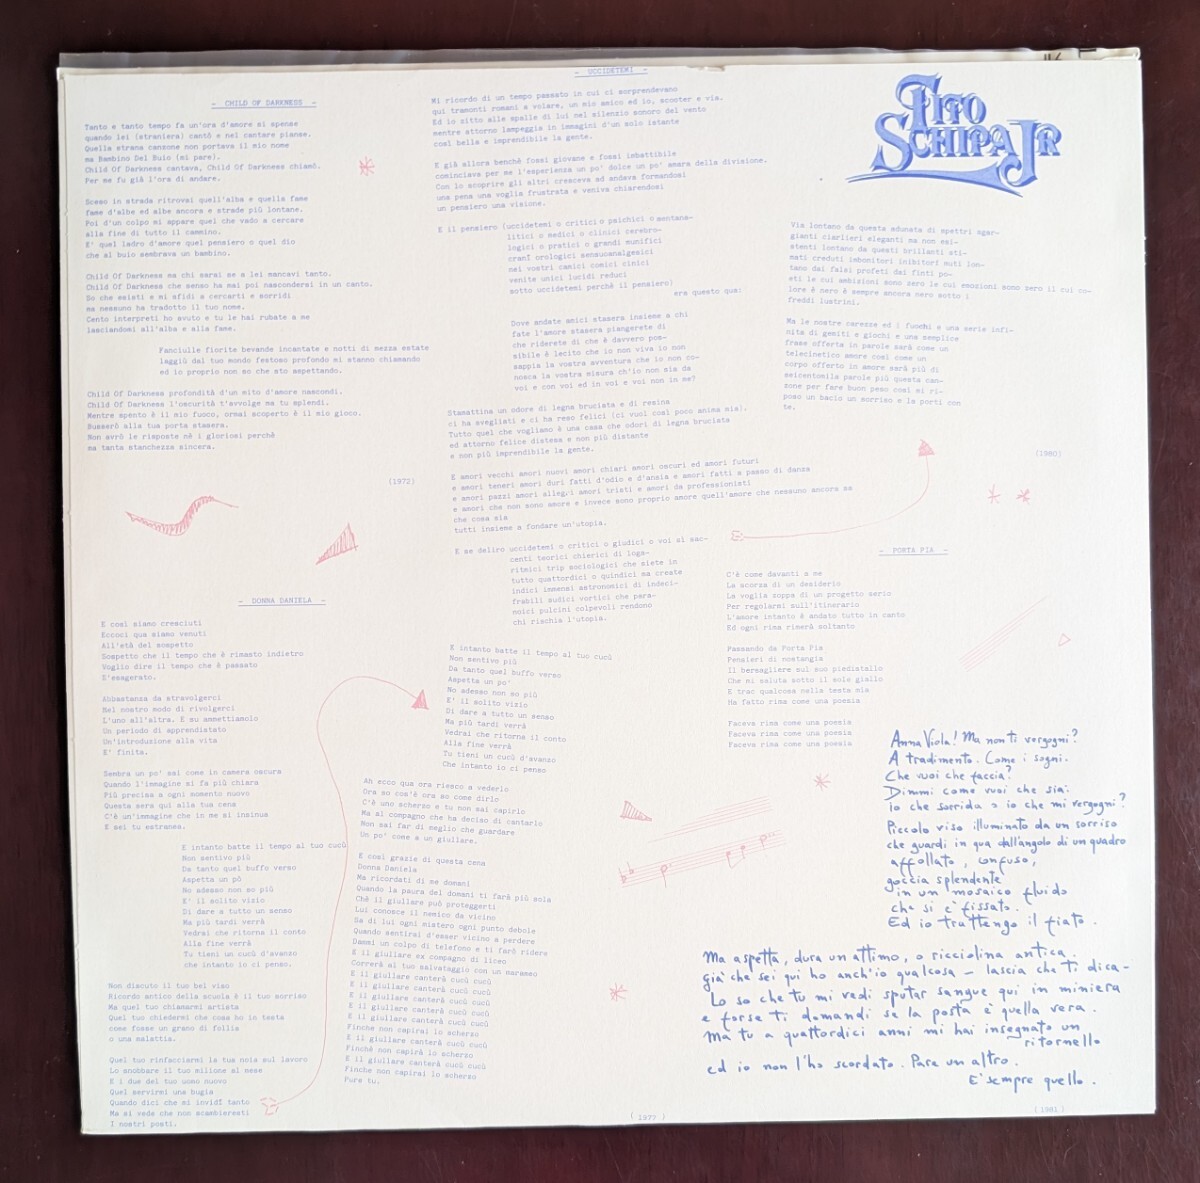 TITO
SCHIPA JR
- CHILD OF DARKNESS -
Tanto e tanto tempo fa un'ora d'amore si spense
quando lei (straniera) cantò e nel cantare pianse.
Quella strana canzone non portava il mio nome
ma Bambino Del Buio (mi pare).
Child Of Darkness cantava, Child Of Darkness chiamò.
Per me fu già l'ora di andare.
Sceso in strada ritrovai quell'alba e quella fame
fame d'albe ed albe ancora e strade più lontane.
Poi d'un colpo mi appare quel che vado a cercare
alla fine di tutto il cammino.
E' quel ladro d'amore quel pensiero o quel dio
che al buio sembrava un bambino.
Child Of Darkness ma chi sarai se a lei mancavi tanto.
Child Of Darkness che senso ha mai poi nascondersi in un canto.
So che esisti e mi sfidi a cercarti e sorridi
ma nessuno ha tradotto il tuo nome.
Cento interpreti ho avuto e tu le hai rubate a me
lasciandomi all'alba e alla fame.
Fanciulle fiorite bevande incantate e notti di mezza estate
laggiù dal tuo mondo festoso profondo mi stanno chiamando
ed io proprio non so che sto aspettando.
Child Of Darkness profondità d'un mito d'amore nascondi.
Child Of Darkness l'oscurità t'avvolge ma tu splendi.
Mentre spento è il mio fuoco, ormai scoperto è il mio gioco.
Busserò alla tua porta stasera.
Non avrò le risposte né i gloriosi perchè
ma tanta stanchezza sincera.
(1972)
- DONNA DANIELA -
E così siamo cresciuti
Eccoci qua siamo venuti
All'età del sospetto
Sospetto che il tempo che è rimasto indietro
Voglio dire il tempo che è passato
E'esagerato.
Abbastanza da stravolgerci
Nel nostro modo di rivolgerci
L'uno all'altra. E su ammettiamolo
Un periodo di apprendistato
Un'introduzione alla vita
E' finita.
Sembra un po' sai come in camera oscura
Quando l'immagine si fa più chiara
Più precisa a ogni momento nuovo
Questa sera qui alla tua cena
C'è un'immagine che in me si insinua
E sei tu estranea.
E intanto batte il tempo al tuo cucù
Non sentivo più
Da tanto quel buffo verso
Aspetta un pò
No adesso non so più
E' il solito vizio
Di dare a tutto un senso
Ma più tardi verrà
Vedrai che ritorna il conto
Alla fine verrà
Tu tieni un cucù d'avanzo
che intanto io ci penso.
Non discuto il tuo bel viso
Ricordo antico della scuola è il tuo sorriso
Ma quel tuo chiamarmi artista
Quel tuo chiedermi che cosa ho in testa
come fosse un grano di follia
o una malattia.
Quel tuo rinfacciarmi la tua noia sul lavoro
Lo snobbare il tuo milione al mese
E i due del tuo uomo nuovo
Quel servirmi una bugia
Quando dici che mi invidi tanto
Ma si vede che non scambieresti
I nostri posti.
E intanto batte il tempo al tuo cucù
Non sentivo più
Da tanto quel buffo verso
Aspetta un po'
No adesso non so più
E' il solito vizio
Di dare a tutto un senso
Ma più tardi verrà
Vedrai che ritorna il conto
Alla fine verrà
Tu tieni un cucù d'avanzo
Che intanto io ci penso
Ah ecco qua ora riesco a vederlo
Ora so cos'è ora so come dirlo
C'è uno scherzo e tu non sai capirlo
Ma al compagno che ha deciso di cantarlo
Non sai far di meglio che guardare
Un po' come a un giullare.
E così grazie di questa cena
Donna Daniela
Ma ricordati di me domani
Quando la paura del domani ti farà più sola
Chè il giullare può proteggerti
Lui conosce il nemico da vicino
Sa di lui ogni mistero ogni punto debole
Quando sentirai d'esser vicino a perdere
Dammi un colpo di telefono e ti farò ridere
E il giullare ex compagno di liceo
Correrà al tuo salvataggio con un marameo
E il giullare canterà cucù cucù
E il giullare canterà cucù cucù
E il giullare canterà cucù cucù
E il giullare canterà cucù cucù
E il giullare canterà cucù cucù
Finche non capirai lo scherzo
E il giullare canterà cucù cucù
Finchè non capirà lo scherzo
E il giullare canterà cucù cucù
Finche non capirai lo scherzo
Pure tu.
( 1977 )
- UCCIDETEMI -
Mi ricordo di un tempo passato in cui ci sorprendevano
qui tramonti romani a volare, un mio amico ed io, scooter e via.
Ed io zitto alle spalle di lui nel silenzio sonoro del vento
mentre attorno lampeggia in immagini d'un solo istante
così bella e imprendibile la gente.
E già allora benchè fossi giovane e fossi imbattibile
cominciava per me l'esperienza un po' dolce un po' amara della divisione.
Con lo scoprire gli altri cresceva ed andava formandosi
una pena una voglia frustrata e veniva chiarendosi
un pensiero una visione.
E il pensiero (uccidetemi o critici o psichici o montana-
litici o medici o clinici cerebro-
logici o pratici o grandi munifici
crani orologici sensuoanalgesici
nei vostri camici comici cinici
venite unici lucidi reduci
sotto uccidetemi perchè il pensiero)
era questo qua:
Dove andate amici stasera insieme a chi
fate l'amore stasera piangerete di
che riderete di che è davvero pos-
sibile è lecito che io non viva io non
sappia la vostra avventura che io non co-
nosca la vostra misura ch'io non sia da
voi e con voi ed in voi e voi non in me?
Stamattina un odore di legna bruciata e di resina
ci ha svegliati e ci ha reso felici (ci vuol così poco anima mia).
Tutto quel che vogliamo è una casa che odori di legna bruciata
ed attorno felice distesa e non più distante
e non più imprendibile la gente.
E amori vecchi amori nuovi amori chiari amori oscuri ed amori futuri
e amori teneri amori duri fatti d'odio e d'ansia e amori fatti a passo di danza
e amori pazzi amori allegri amori tristi e amori da professionisti
e amori che non sono amore e invece sono proprio amore quell'amore che nessuno ancora sa
che cosa sia
tutti insieme a fondare un'utopia.
E se deliro uccidetemi o critici o giudici o voi al sac-
centi teorici chierici di loga-
ritmici trip sociologici che siete in
tutto quattordici o quindici ma create
indici immensi astronomici di indeci-
frabili sudici vortici che para-
noici pulcini colpevoli rendono
chi rischia l'utopia.
Via lontano da questa adunata di spettri sgar-
gianti ciarlieri eleganti ma non esi-
stenti lontano da questi brillanti sti-
mati creduti imbonitori inibitori muti lon-
tano dai falsi profeti dai finti po-
eti le cui ambizioni sono zero le cui emozioni sono zero il cui co-
lore è nero è sempre ancora nero sotto i
freddi lustrini.
Ma le nostre carezze ed i fuochi e una serie infi-
nita di gemiti e giochi e una semplice
frase offerta in parole sarà come un
telecinetico amore così come un
corpo offerto in amore sarà più di
seicentomila parole più questa can-
zone per fare buon peso così mi ri-
poso un bacio un sorriso e la porti con
te.
(1980)
- PORTA PIA -
C'è come davanti a me
La scorza di un desiderio
La voglia zoppa di un progetto serio
Per regolarmi sull'itinerario
L'amore intanto è andato tutto in canto
Ed ogni rima rimerà soltanto
Passando da Porta Pia
Pensieri di nostangia
Il bersagliere sul suo piedistallo
Che mi saluta sotto il sole giallo
E trac qualcosa nella testa mia
Ha fatto rima come una poesia
Faceva rima come una poesia
Faceva rima come una poesia
Faceva rima come una poesia
Anna Viola! Ma non ti vergogni?
A tradimento. Come i sogni.
Che vuoi che faccia?
Dimmi come vuoi che sia:
io che sorrido o io che mi vergogni?
Piccolo viso illuminato da un sorriso
che guardi in qua dall'angolo di un quadro
affollato, confuso,
goccia splendente
in un mosaico fluido
che si è fissato.
Ed io trattengo il fiato.
Ma aspetta, dura un attimo, o ricciolina antica.
Già che sei qui ho anch'io qualcosa - lascia che ti dica -
Lo so che tu mi vedi sputar sangue qui in miniera
e forse ti domandi se la posta è quella vera.
Ma tu a quattordici anni mi hai insegnato un
ritornello
ed io non l'ho scordato. Pare un altro.
E' sempre quello.
(1981)